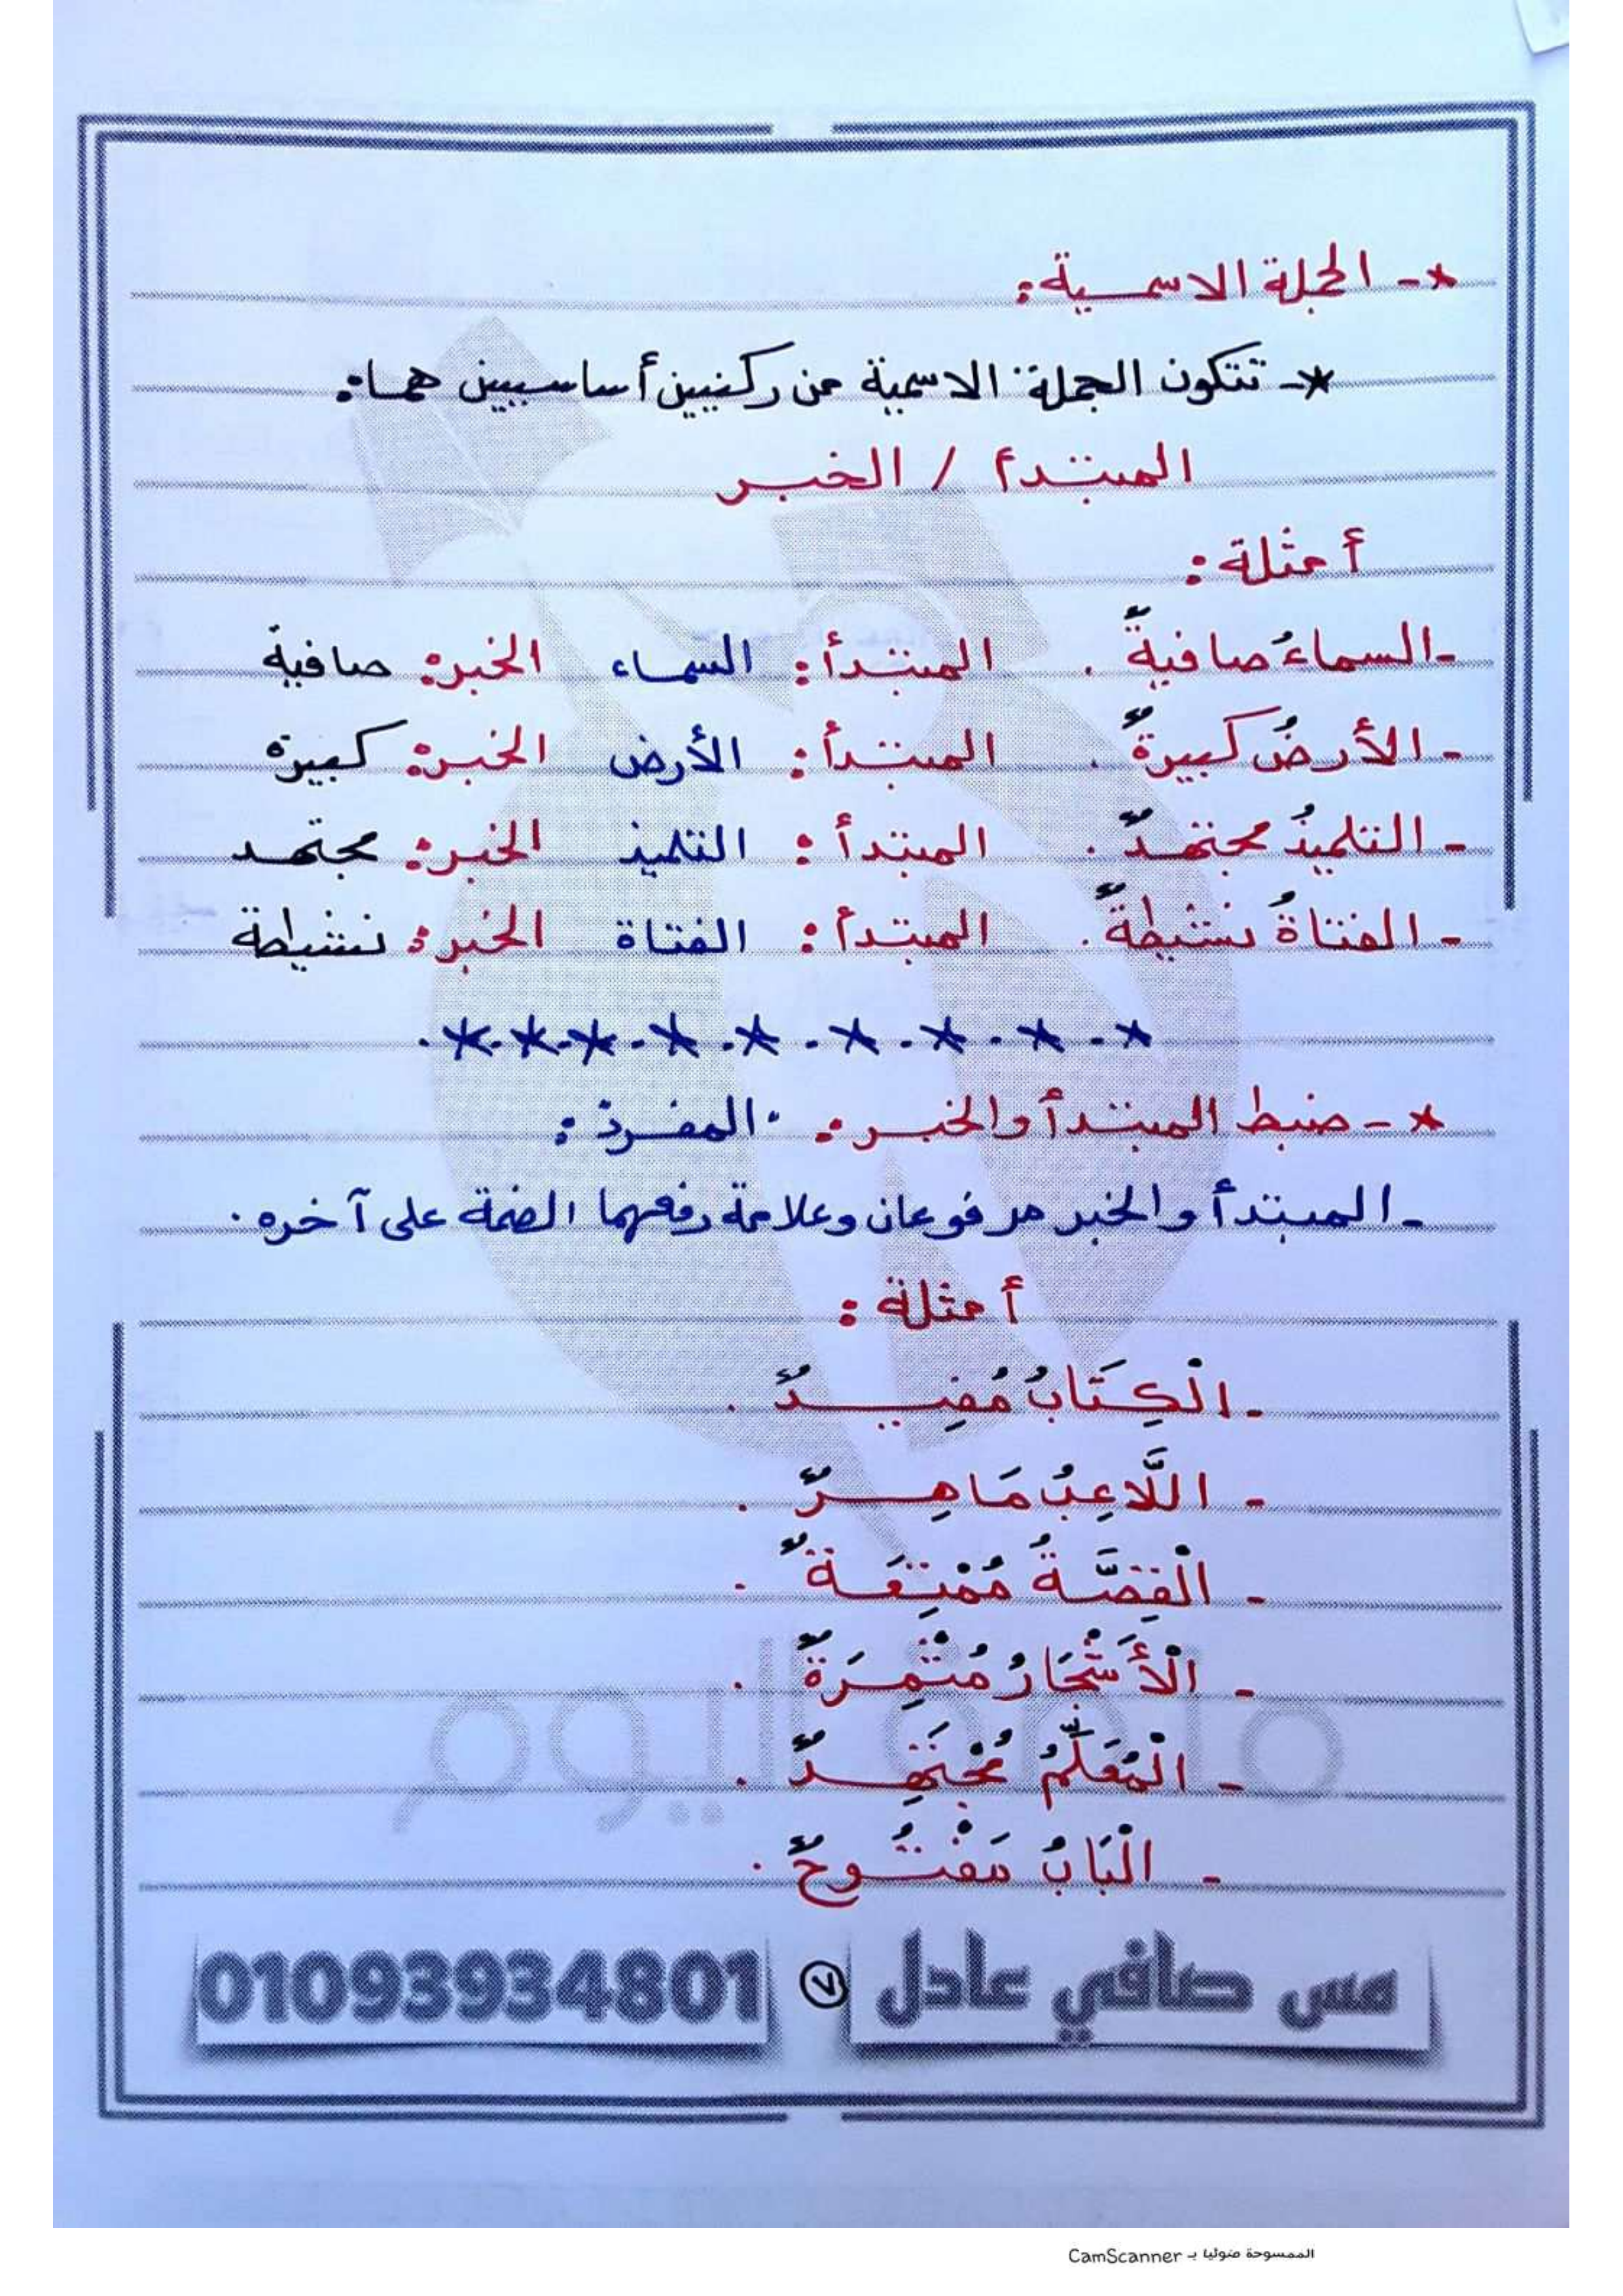 *- الجملة الاسمية:
*- تتكون الجملة الاسمية من ركنيين أساسيين هما:
المبتدأ / الخبر
أمثلة:
- السماءُ صافيةٌ . المبتدأ: السماء الخبر: صافية
- الأرضُ كبيرةٌ . المبتدأ: الأرض الخبر: كبيرة
- التلميذُ مجتهدٌ . المبتدأ: التلميذ الخبر: مجتهد
- الفتاةُ نشيطةٌ . المبتدأ: الفتاة الخبر: نشيطة
*-*-*-*.*-*-*.*.*.
*- ضبط المبتدأ والخبر: "المفرد":
- المبتدأ والخبر مرفوعان وعلامة رفعهما الضمة على آخره .
أمثلة :
- الْكِتَابُ مُفِيدٌ .
- اللَّاعِبُ مَاهِرٌ .
- الْقِصَّةُ مُمْتِعَةٌ .
- الْأَشْجَارُ مُثْمِرَةٌ .
- الْمُعَلِّمُ مُجْتَهِدٌ .
- الْبَابُ مَفْتُوحٌ .
مس صافي عادل ٧ 01093934801
ملزمة اليوم
الممسوحة ضوئيا بـ CamScanner